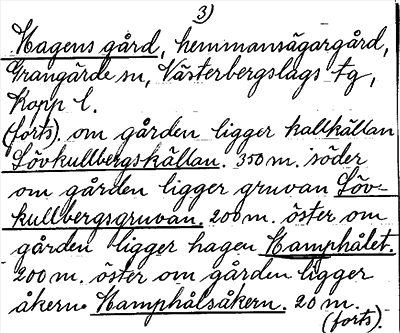 3)
Hagens gård, hemmansägargård,
Grangärde sn, Västerbergslags tg,
Kopp l.
(forts). om gården ligger kallkällan
Lövkullbergskällan. 350 m. söder
om gården ligger gruvan Löv-
kullbergsgruvan. 200 m. öster om
gården ligger hagen Hamphålet.
200 m. öster om gården ligger
åkern Hamphålsåkern. 20 m.
(forts).